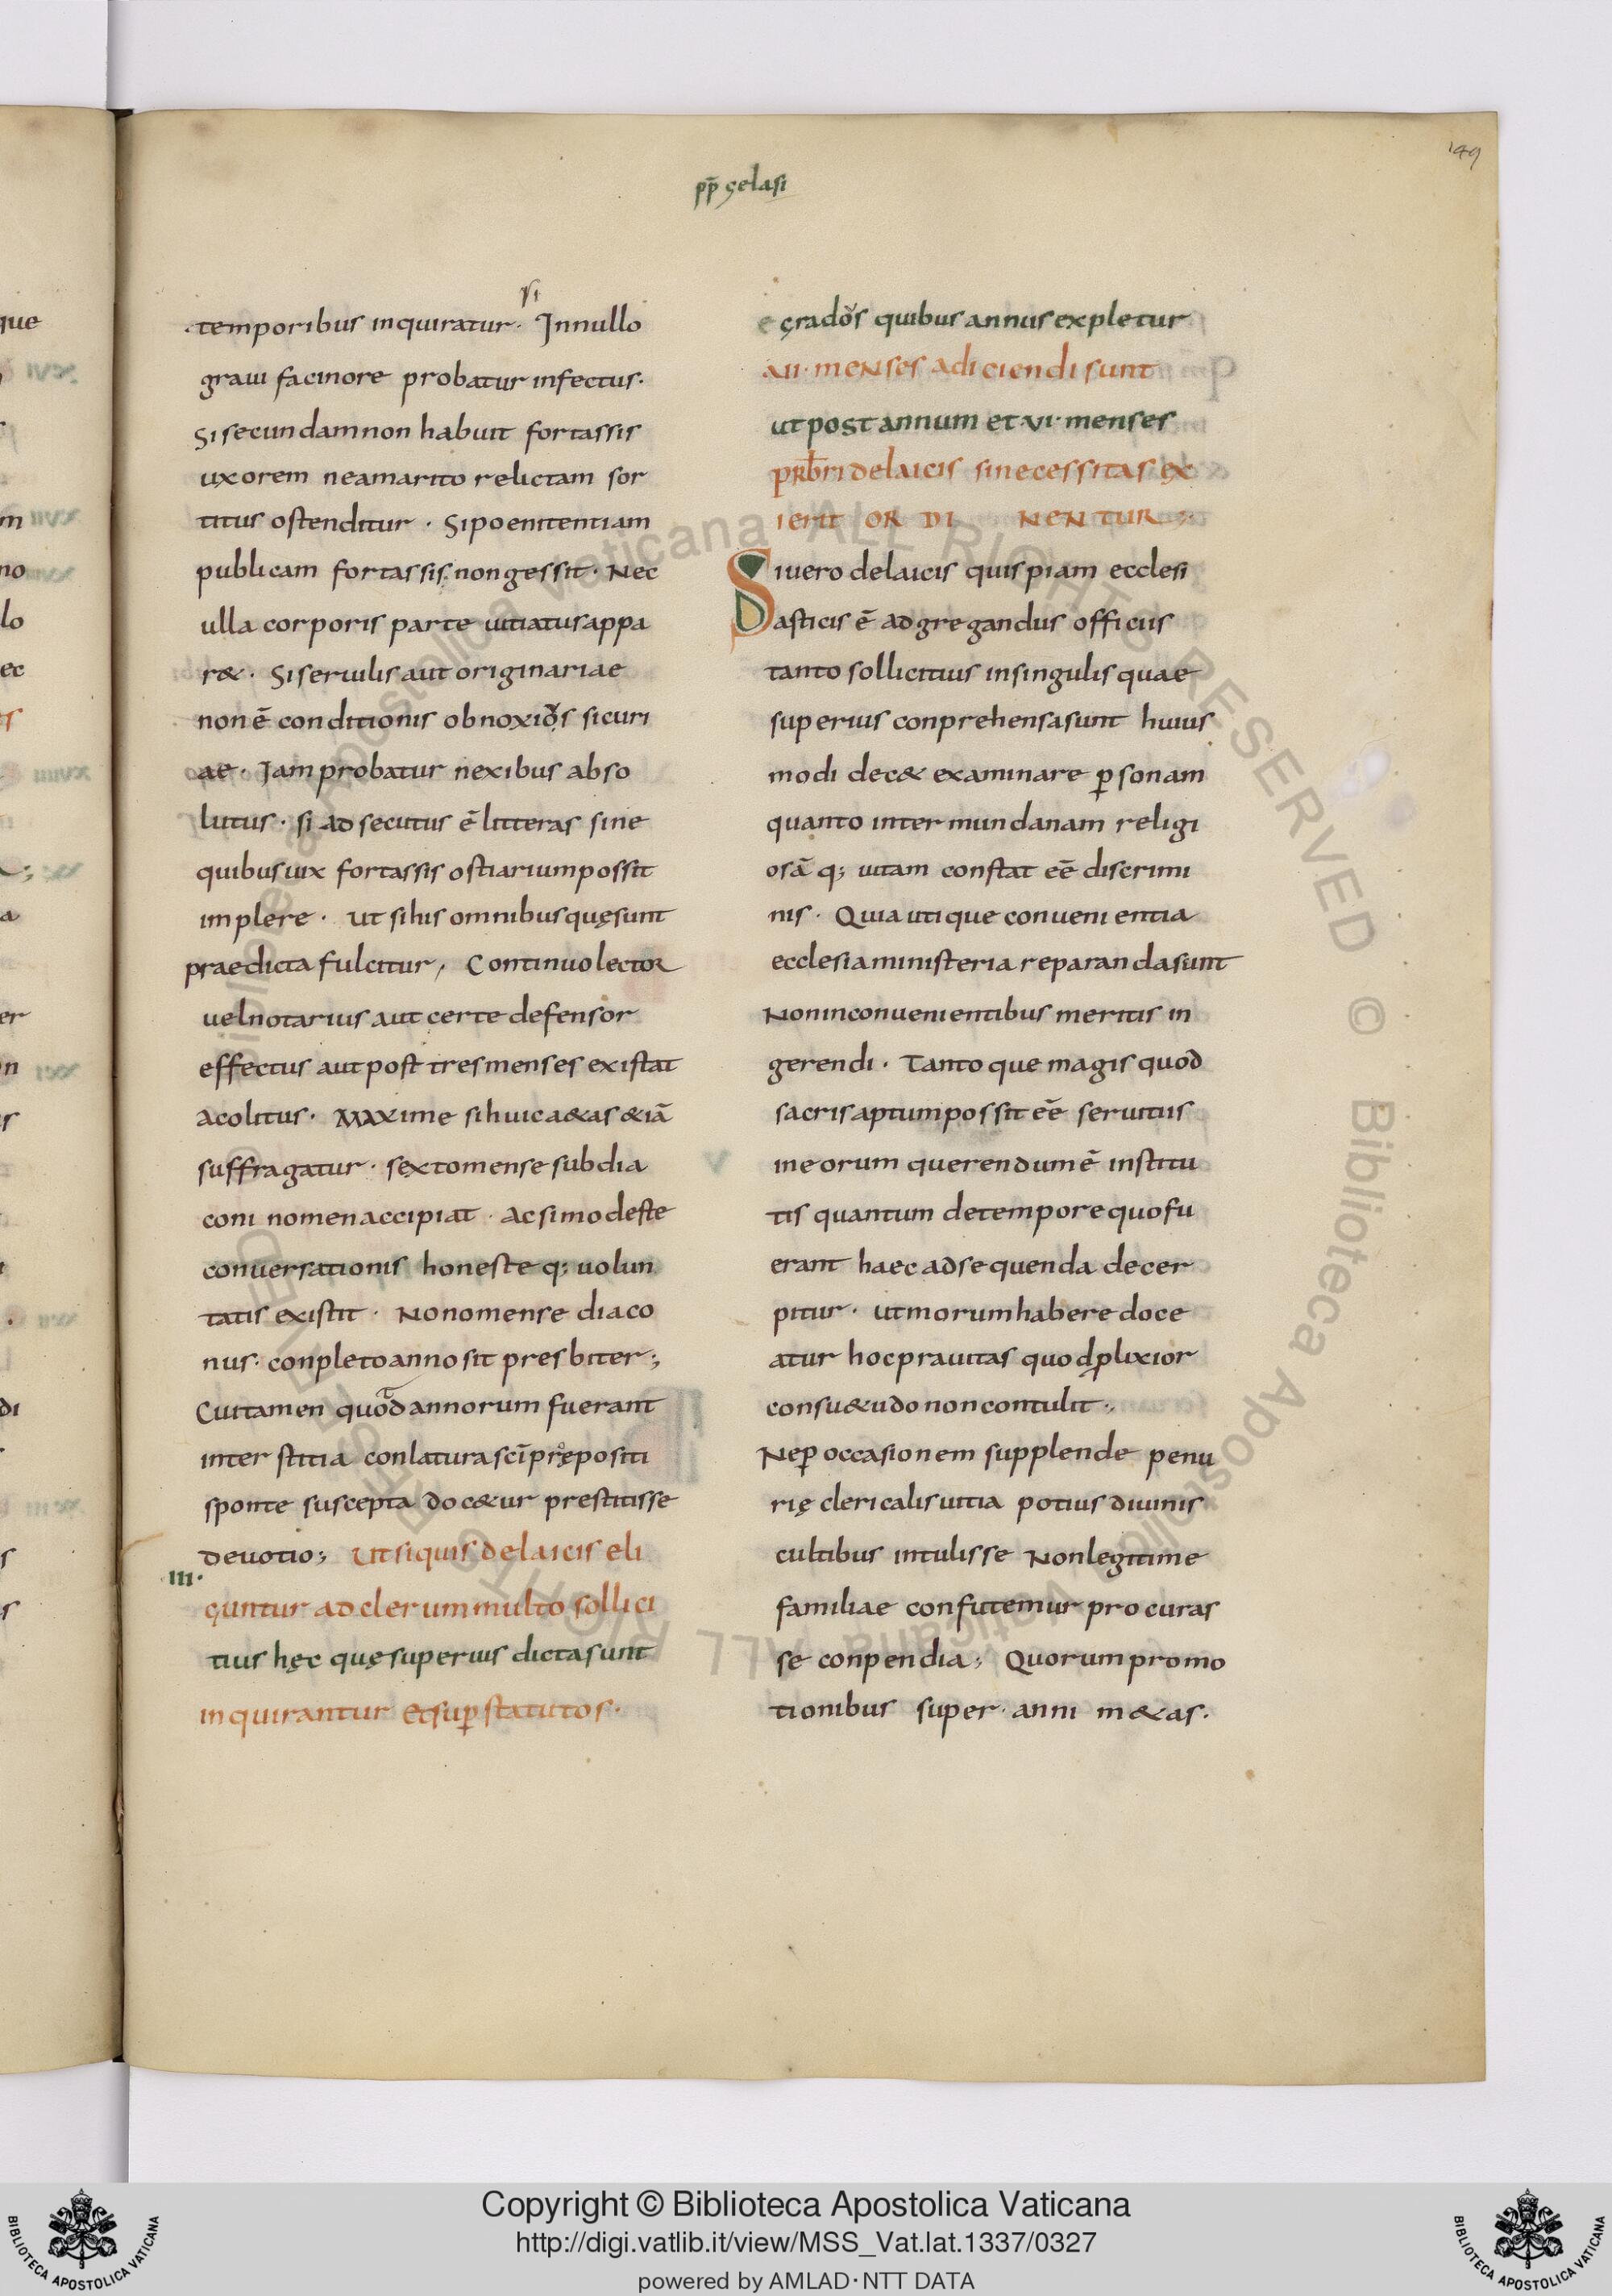 149
pp̄ gelasi
si
temporibus inquiratur · Innullo
graui facinore probatur infectus ·
Si secundam non habuit fortassis
uxorem ne a marito relictam sor
titus ostenditur · Si poenitentiam
publicam fortassis non gessit · Nec
ulla corporis parte uitiatus appa
r& · Si seruilis aut originariae
non ē conditionis obnoxiǒs sicuri
ae · Iam probatur nexibus abso
lutus · si adsecutus ē litteras sine
quibus uix fortassis ostiarium possit
implere · ut si his omnibus quę sunt
praedicta fulcitur, Continuo lector
uel notarius aut certe defensor
effectus aut post tres menses existat
acolitus · Maxime si huic a&as &iā
suffragatur · sexto mense subdia
coni nomen accipiat · ac si modeste
conuersationis honeste q; uolun
tatis existit · Nono mense diaco
nus · conpleto anno sit presbiter;
Cui tamen quod annorum fuerant
interstitia conlatura sci prępositi
sponte suscepta doc&ur prestitisse
deuotio; Ut si quis de laicis eli
III·
guntur ad clerum multo sollici
tius hęc quę superius dicta sunt
inquirantur et sup̄ statutos ·
e gradǒs quibus annus expletur
menses adiciendi sunt
ut post annum et · VI · menses
prb̄ri de laicis si necessitas ex
ierit ORDINENTUR
Si uero de laicis quispiam ecclesi
asticis ē adgregandus officiis
tanto sollicitius in singulis quae
superius conprehensa sunt huius
modi dec& examinare p̄sonam
quanto inter mundanam religi
osā q; uitam constat eē discrimi
nis · Quia utique conuenientia
ecclesia ministeria reparanda sunt
Non inconuenientibus meritis in
gerendi · Tantoque magis quod
sacris aptum possit eē seruitiis
in eorum querendum ē institu
tis quantum de tempore quo fu
erant haec adsequenda decer
pitur · ut morum habere doce
atur hoc prauitas quod p̄lixior
consu&udo non contulit ·
Ne p̄ occasionem supplende penu
rię clericalis uitia potius diuinis
cultibus intulisse Non legitime
familiae confutemur procuras
se conpendia; Quorum promo
tionibus super · anni m&as ·
Copyright © Biblioteca Apostolica Vaticana
http://digi.vatlib.it/view/MSS_Vat.lat.1337/0327
powered by AMLAD·NTT DATA
BIBLIOTECA APOSTOLICA VATICANA
BIBLIOTECA APOSTOLICA VATICANA